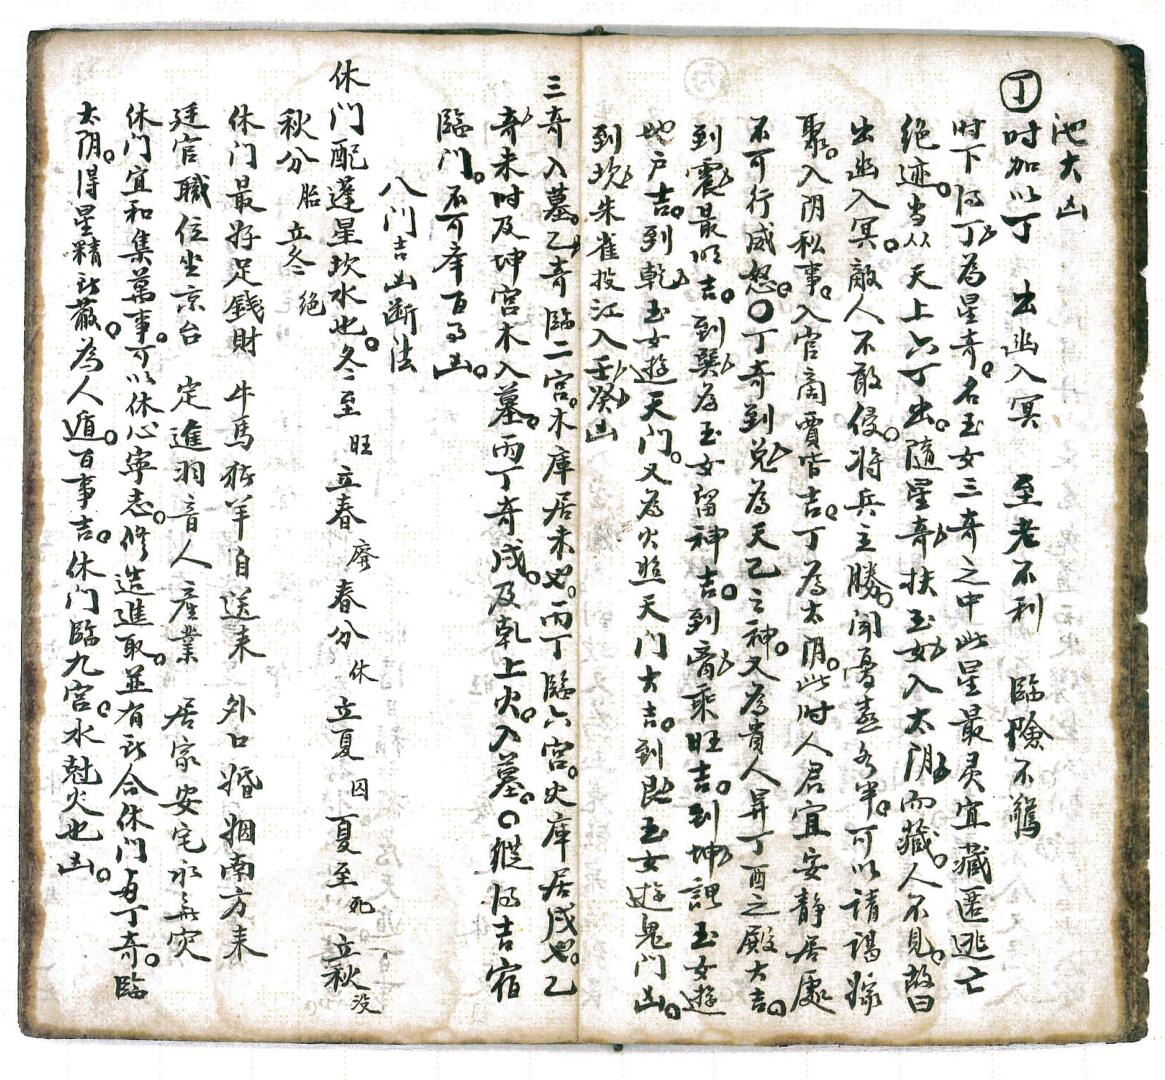 池大凶
丁时加以丁 出幽入冥 至老不利 臨險不驚
时下得丁為星奇。名玉女三奇之中此星最灵宜藏匿逃亡
绝迹。当从天上六丁出。随星奇扶玉女入太阴而藏。人不見。故曰
出幽入冥。敵人不敢侵。将兵主勝。闻憂喜各半。可以請謁嫁
聚。入阴私事。入官商賈皆吉。丁為太阴。此时人君宜安静居處
不可行威怒。〇丁奇到兑為天乙之神。又為貴人昇丁酉之殿大吉。
到震最明吉。到巽為玉女留神吉。到离乘旺吉。到坤謂玉女遊
地户吉。到乾玉女遊天门。又為火照天门大吉。到艮玉女遊鬼门凶。
到坎朱雀投江入壬癸凶
三奇入墓。乙奇臨二宫。木庫居未也。丙丁臨六宫。火庫居戌也。乙
奇未时及坤宫木入墓。丙丁奇戌。及乾上火。入墓。〇縱得吉宿
臨门。不可举百事凶。
八门吉凶断法
休门配蓬星坎水也。冬至旺立春廢春分休立夏囚夏至死立秋没
秋分胎立冬绝
休门最好足錢財 牛馬猪羊自送来 外口婚姻南方来
廷官職位坐京台 定進羽音人產業 居家安宅永無灾
休门宜和集萬事。可以休心寧志。修造進取。並有所合休门与丁奇。臨
太阴。得星精所蔽。為人遁。百事吉。休门臨九宫水尅火也凶。